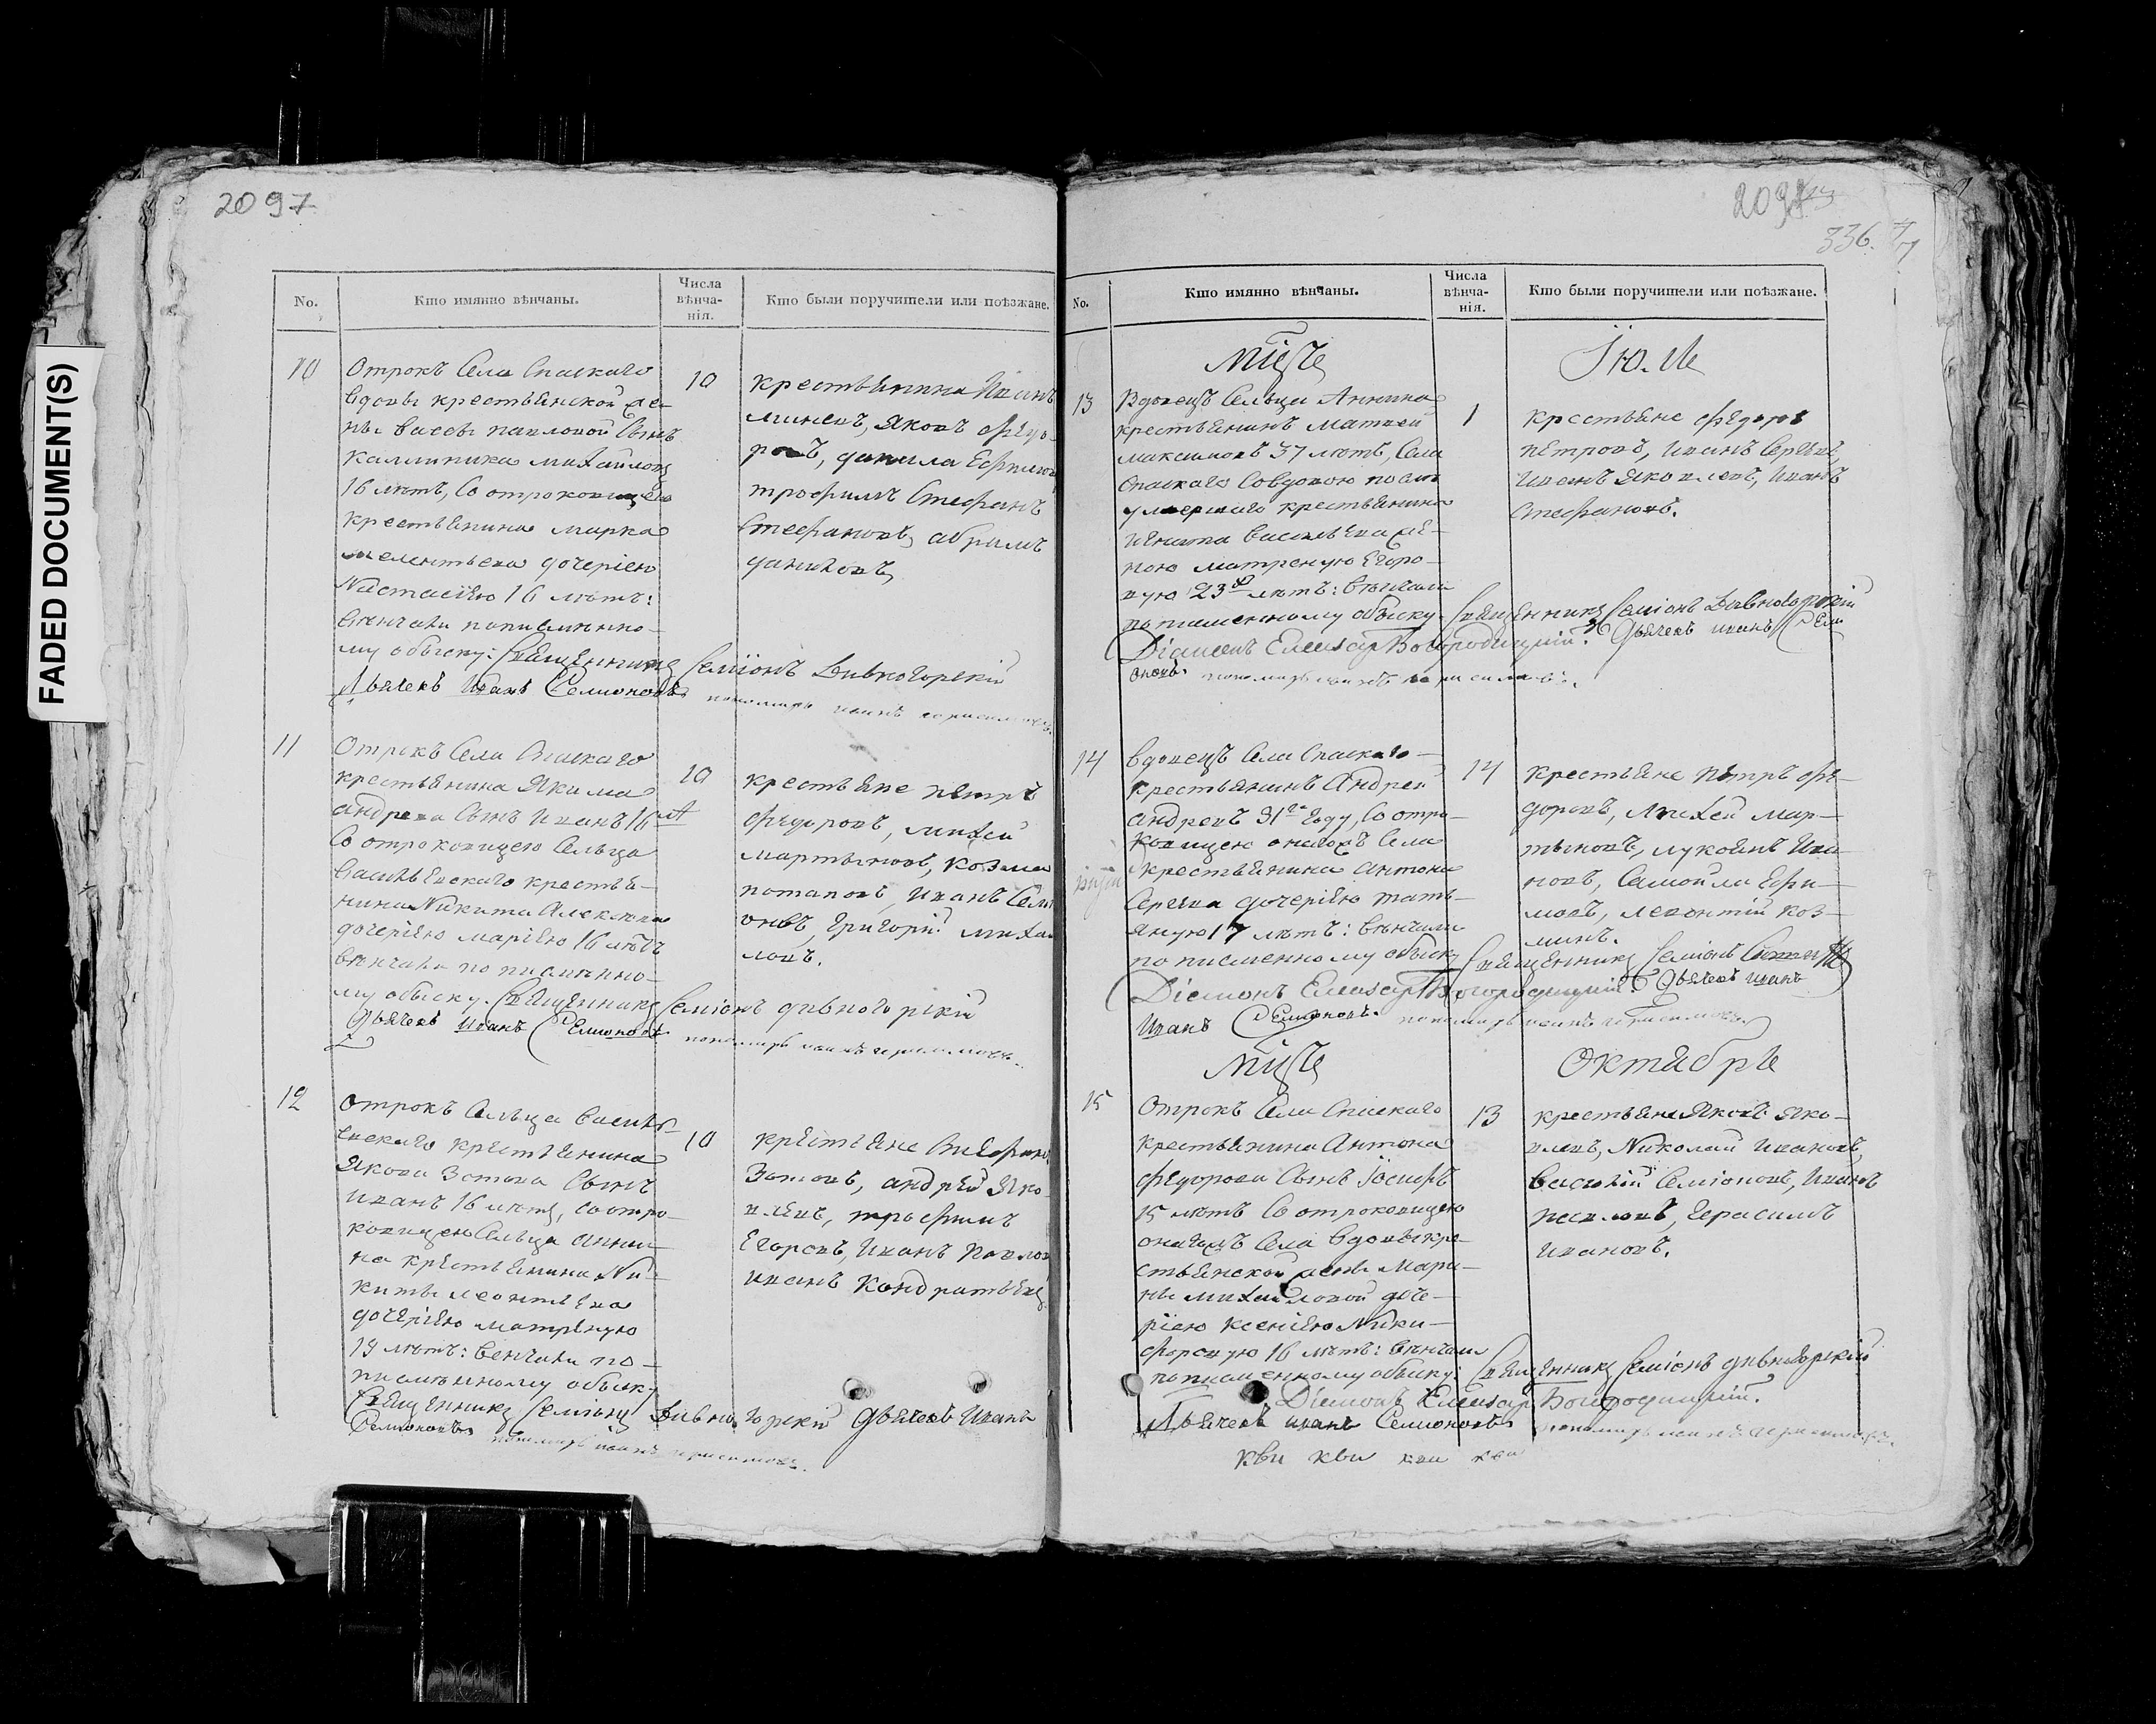 FADED DOCUMENT(S)
2097
No.
Кто имянно вѣнчаны.
Числа вѣнча-
нія.
Кто были поручители или поѣзжане.
10
Отрокъ Села Спаскаго
вдовы крестьянской же-
ны павловой Сынъ
каллиника михайловъ
16 лѣтъ, Со отроковицею
крестьянина марка
дочерiею
Настасiею 16 лѣтъ:
вѣнчаны по писменно-
му обыску: Священникъ Семiонъ Дивногорскiй
Дьячекъ Иванъ Семионовъ пономарь иванъ герасимовъ.
10
крестьянина Иванъ
минеев, яковъ федо-
ровъ, данила Ефимов
трофимъ Стефанъ
Стефановъ, абрамъ
даниловъ
11
Отрокъ Села Спаскаго
крестьянина Якима
андреева Сынъ Иванъ 16 лѣт
Со отроковицею Сельца
Васильевскаго крестья-
нина Никита Алексеева
дочерiею марiею 16 лѣтъ
вѣнчаны по писменно-
му обыску. Священникъ Семiонъ дивногорскiй
Дьячекъ иванъ Семионовъ пономарь иванъ герасимовъ.
10
крестьяне петръ
федоровъ, михей
мартыновъ, козма
потаповъ, Иванъ Семи
оновъ, Григорiй михаи
ловъ.
12
Отрокъ Сельца Василь-
евскаго крестьянина
Якова Зотова Сынъ
Иванъ 16 лѣтъ, Со отро-
ковицею Сельца Аннин-
на крестьянина Ни-
киты леонтьева
дочерiею матреною
19 лѣтъ: венчаны по-
писменному обыску
Священникъ Семiонъ Дивногорскiй Дьячекъ Иванъ
Семионовъ пономарь иванъ герасимовъ.
10
крестьяне
Зотовъ, андрей Яко-
влевъ, трофимъ
Егоровъ, Иванъ Павлов
иванъ Кондратьевъ
336.
No.
Кто имянно вѣнчаны.
Числа вѣнча-
нія.
Кто были поручители или поѣзжане.
мцъ Iюль
13
Вдовецъ Сельца Аннина
крестьянинъ Матвей
максимовъ 37 лѣтъ, Села
Спаскаго Совдовою после
умершаго крестьянина
игната васильева же-
ною матреною Егоро-
вую 23 лѣтъ: вѣнчаны
по писменному обыску. Священникъ Семiонъ Дивногорскiй
Дiаконъ Елеазар Богородицкiй. Дьячекъ иванъ Семи
оновъ. пономарь иванъ герасимовъ.
1
крестьяне федоръ
петровъ, иванъ Сергеевъ,
иванъ Яковлевъ, иванъ
Стефановъ.
14
Вдовецъ Села Спаскаго
крестьянинъ Андрей
андреевъ 31го году, Со отро-
ковицею онагожъ Села
крестьянина антона
Сергеева дочерiею тать-
яною 17 лѣтъ: вѣнчаны
по писменному обыску Священникъ Семiонъ
Дiаконъ Елеазар Богородицкiй. Дьячекъ иванъ
Иванъ Семионовъ. пономарь иванъ герасимовъ.
14
крестьяне петръ фе-
доровъ, михей мар-
тыновъ, лукоянъ Ива
новъ, Самойла Ефи-
мовъ, леонтiй коз-
минъ.
мцъ Октябрь
15
Отрокъ Села Спаскаго
крестьянина Антона
федорова Сынъ iосифъ
15 лѣтъ Со отроковицею
онагожъ Села вдовы кре-
стьянской жены Мари-
ны михайловой доче-
рiею ксенiею Ники-
форовую 16 лѣтъ: вѣнчаны
по писменному обыску: Священникъ Семiонъ дивногорскiй
Дiаконъ Елеазар Богородицкiй.
Дьячекъ иванъ Семионовъ пономарь иванъ герасимовъ.
13
крестьяне Яковъ Яко-
влевъ, Николай ивановъ,
василiй Семiоновъ, иванъ
павловъ, Герасимъ
ивановъ.